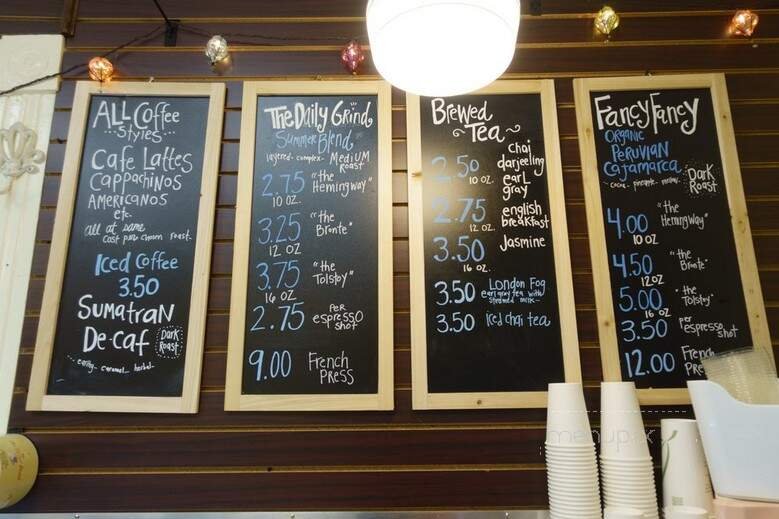 ALL Coffee
Styles
Cafe Lattes
Cappachinos
Americanos
etc.
all at same
cost per chosen roast.
Iced Coffee
3.50
Sumatran
De-Caf
Dark
Roast
earthy - caramel - herbal
The Daily Grind
Summer Blend
layered - complex - Medium
Roast
2.75 "the
Hemingway"
10 oz.
3.25 "the
Bronte"
12 oz
3.75 "the
Tolstoy"
16 oz
2.75 per
espresso
shot
9.00 French
Press
Brewed
Tea
chai
darjeeling
earl
gray
2.50
10 oz.
2.75 english
breakfast
12 oz.
3.50 Jasmine
16 oz.
3.50 London Fog
earl gray tea with
steamed milk
3.50 iced chai tea
Fancy Fancy
Organic
Peruvian
Cajamarca
Dark
Roast
4.00 "the
Hemingway"
10 oz
4.50 "the
Bronte"
12 oz
5.00 "the
Tolstoy"
16 oz
3.50 per
espresso
shot
12.00 French
Press